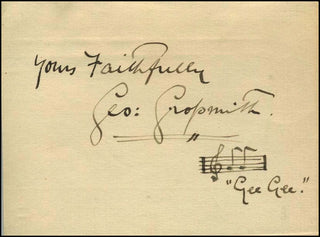 Yours Faithfully
Geo: Grossmith.
"Gee Gee."